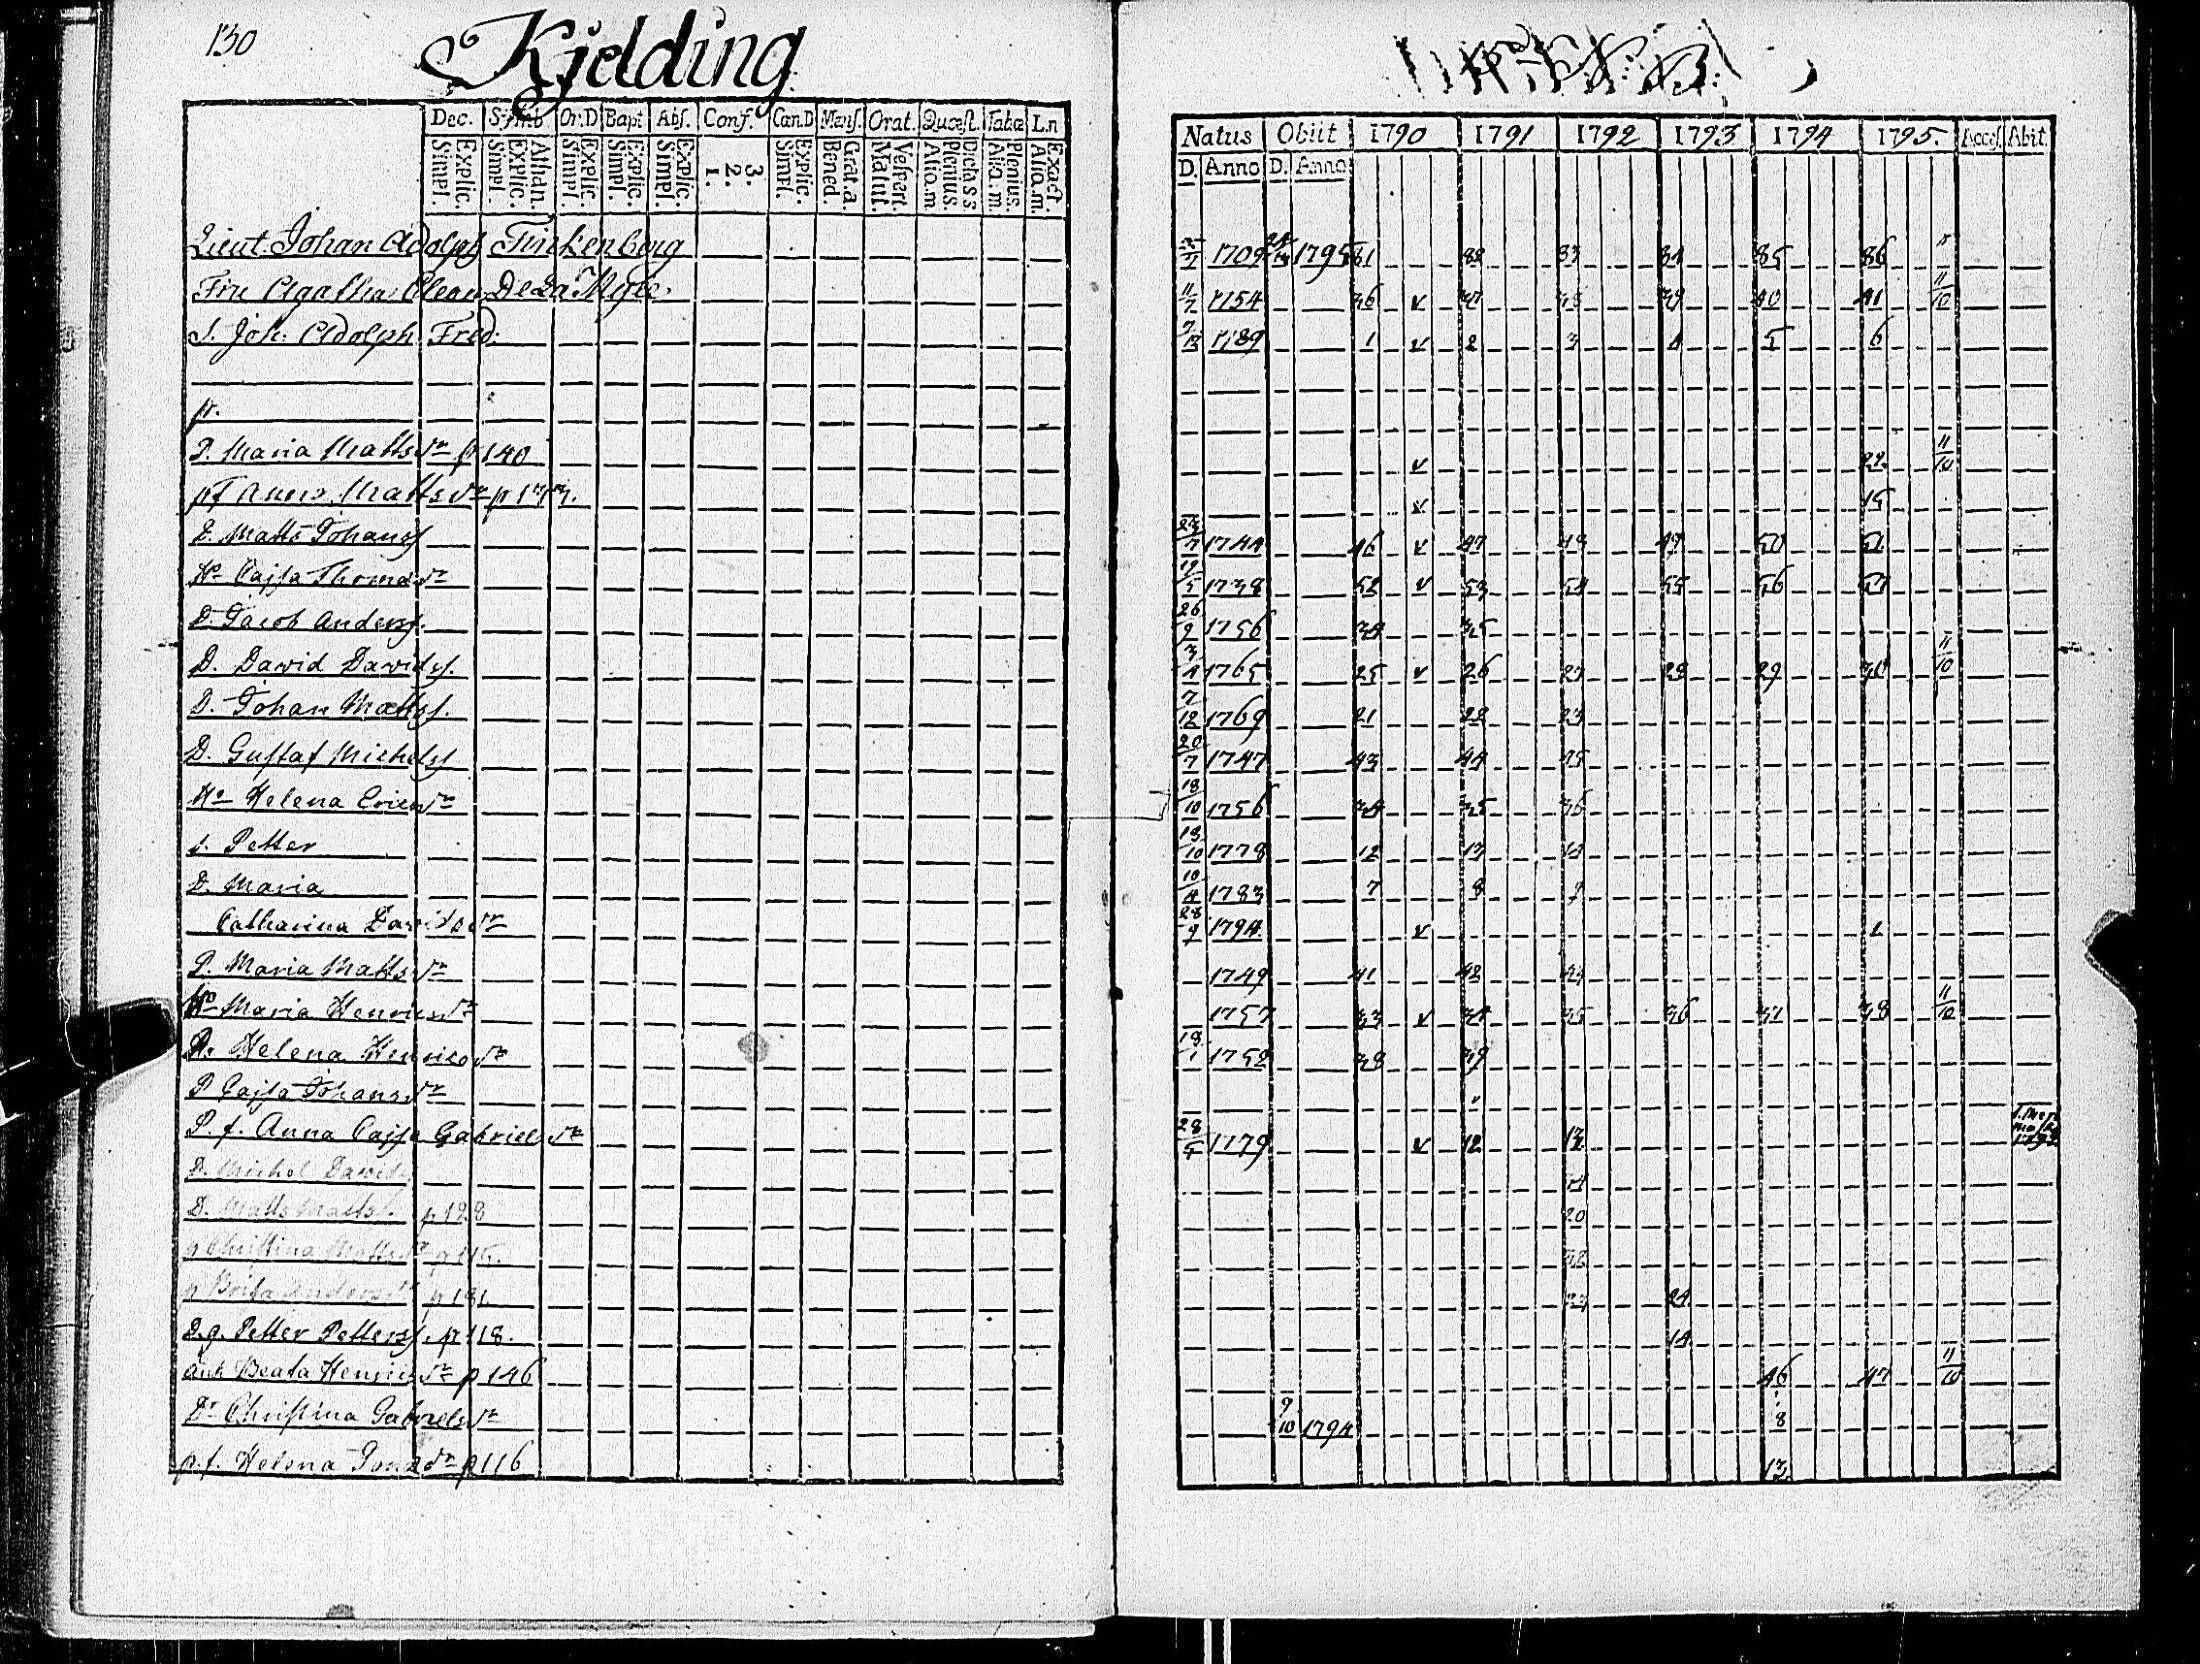 130
Kjelding
Dec. Symb Or.D Bapt Abs. Conf. Can.D Mens. Orat. Quæst. Tabæ L.n
Explic. Simpl. Athan. Explic. Simpl. Explic. Simpl. Explic. Simpl. Explic. Simpl. 3. 2. 1. Explic. Simpl. Grat. a. Bened. Vespert. Matut. Dicta s s Plenius. Alio.m. Plenius. Aliq.m. Exact. Aliq.m.
Lieut. Johan Adolph Finkenberg
Fru Agatha De La Myle
S. Joh: Adolph Fred:
p.
P. Maria Matts dr p 140
Matts dr p
D. Matts Johanss
Hu Cajsa Thomas dr
D. Jacob Anderss.
D. David Davidss.
D. Johan Mattss.
D. Gustaf Michelss
Hu Helena Erics dr
s. Petter
D. Maria
Catharina Davids dr
P. Maria Matts dr
Hu Maria Henrics dr
Helena Henrics dr
P Cajsa Johans dr
P. f. Anna Cajsa Gabriels dr
D. Michel Davids
D. Matts Mattss. p 128
p Christina Matts dr p 116.
p Brita Anders dr p 181
D.g. Petter Petterss. p 118.
Beata Henrics dr p 146
Dr Christina Gabriels dr
p.f. Helena dr p 116
Natus Obiit 1790 1791 1792 1793 1794 1795. Access. Abit.
D. Anno D. Anno
1709 1795 81 82 83 84 85 86
11/7 1754 36 v 37 38 39 40 41 11/10
1789 1 v 2 3 4 5 6
v 22 11/10
v 15
23/7 1744 46 v 47 48 49 50 51
12/5 1738 52 v 53 54 55 56 57
26/9 1756 34 35
3/4 1765 25 v 26 27 28 29 30 11/10
7/12 1769 21 22 23
20/7 1747 43 44 45
18/10 1756 34 35 36
18/10 1778 12 13 14
10/4 1783 7 8 9
28/9 1794 v 1
1749 41 42 43
1757 33 v 34 35 36 37 38 11/10
18/1 1752 38 39
v
28/5 1179 v 12 13
24
20
32
23 24
14
46 47 11/10
9/10 1794 8
13